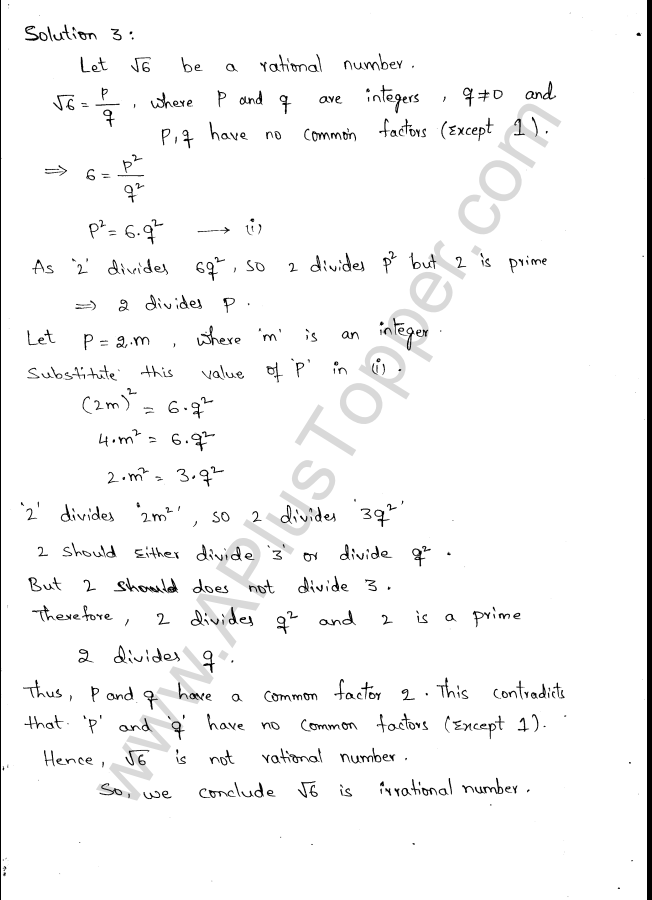 Solution 3 :
Let √6 be a rational number.
√6 = p/q , where p and q are integers , q≠0 and
p,q have no common factors (Except 1).
⇒ 6 = p²/q²
p² = 6.q² → (i)
As '2' divides 6q², so 2 divides p² but 2 is prime
⇒ 2 divides p.
Let p = 2.m , where 'm' is an integer.
Substitute this value of 'p' in (i).
(2m)² = 6.q²
4.m² = 6.q²
2.m² = 3.q²
'2' divides '2m²', so 2 divides '3q²'
2 should Either divide '3' or divide q².
But 2 should does not divide 3.
Therefore, 2 divides q² and 2 is a prime
2 divides q.
Thus, p and q have a common factor 2. This contradicts
that 'p' and 'q' have no common factors (Except 1).
Hence, √6 is not rational number.
So, we conclude √6 is irrational number.
www.APlusTopper.com